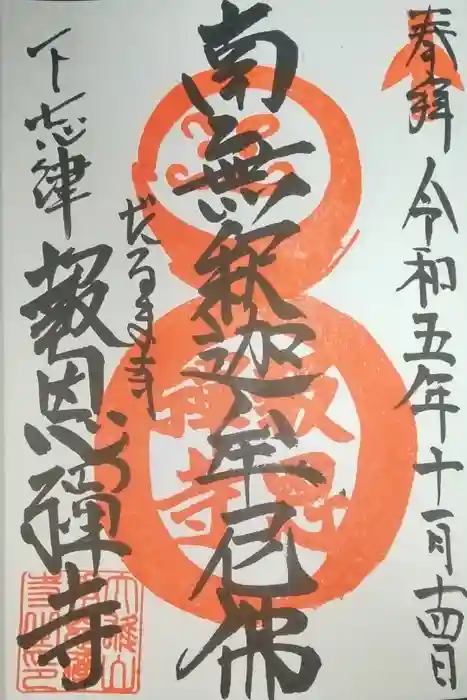 奉拝 令和五年十一月十四日
南無釈迦牟尼佛
だるま寺
下志津
報恩禅寺
報恩
禅寺